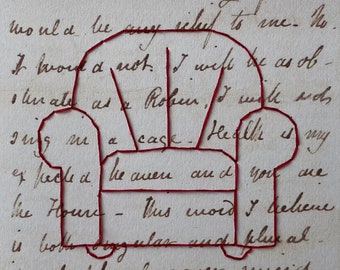 would be any relief to me. No.
It would not. I will be as ob-
stinate as a Robin, I will not
sing in a cage. Health is my
expected heaven and you are
the Houri — this word I believe
is both singular and plural —